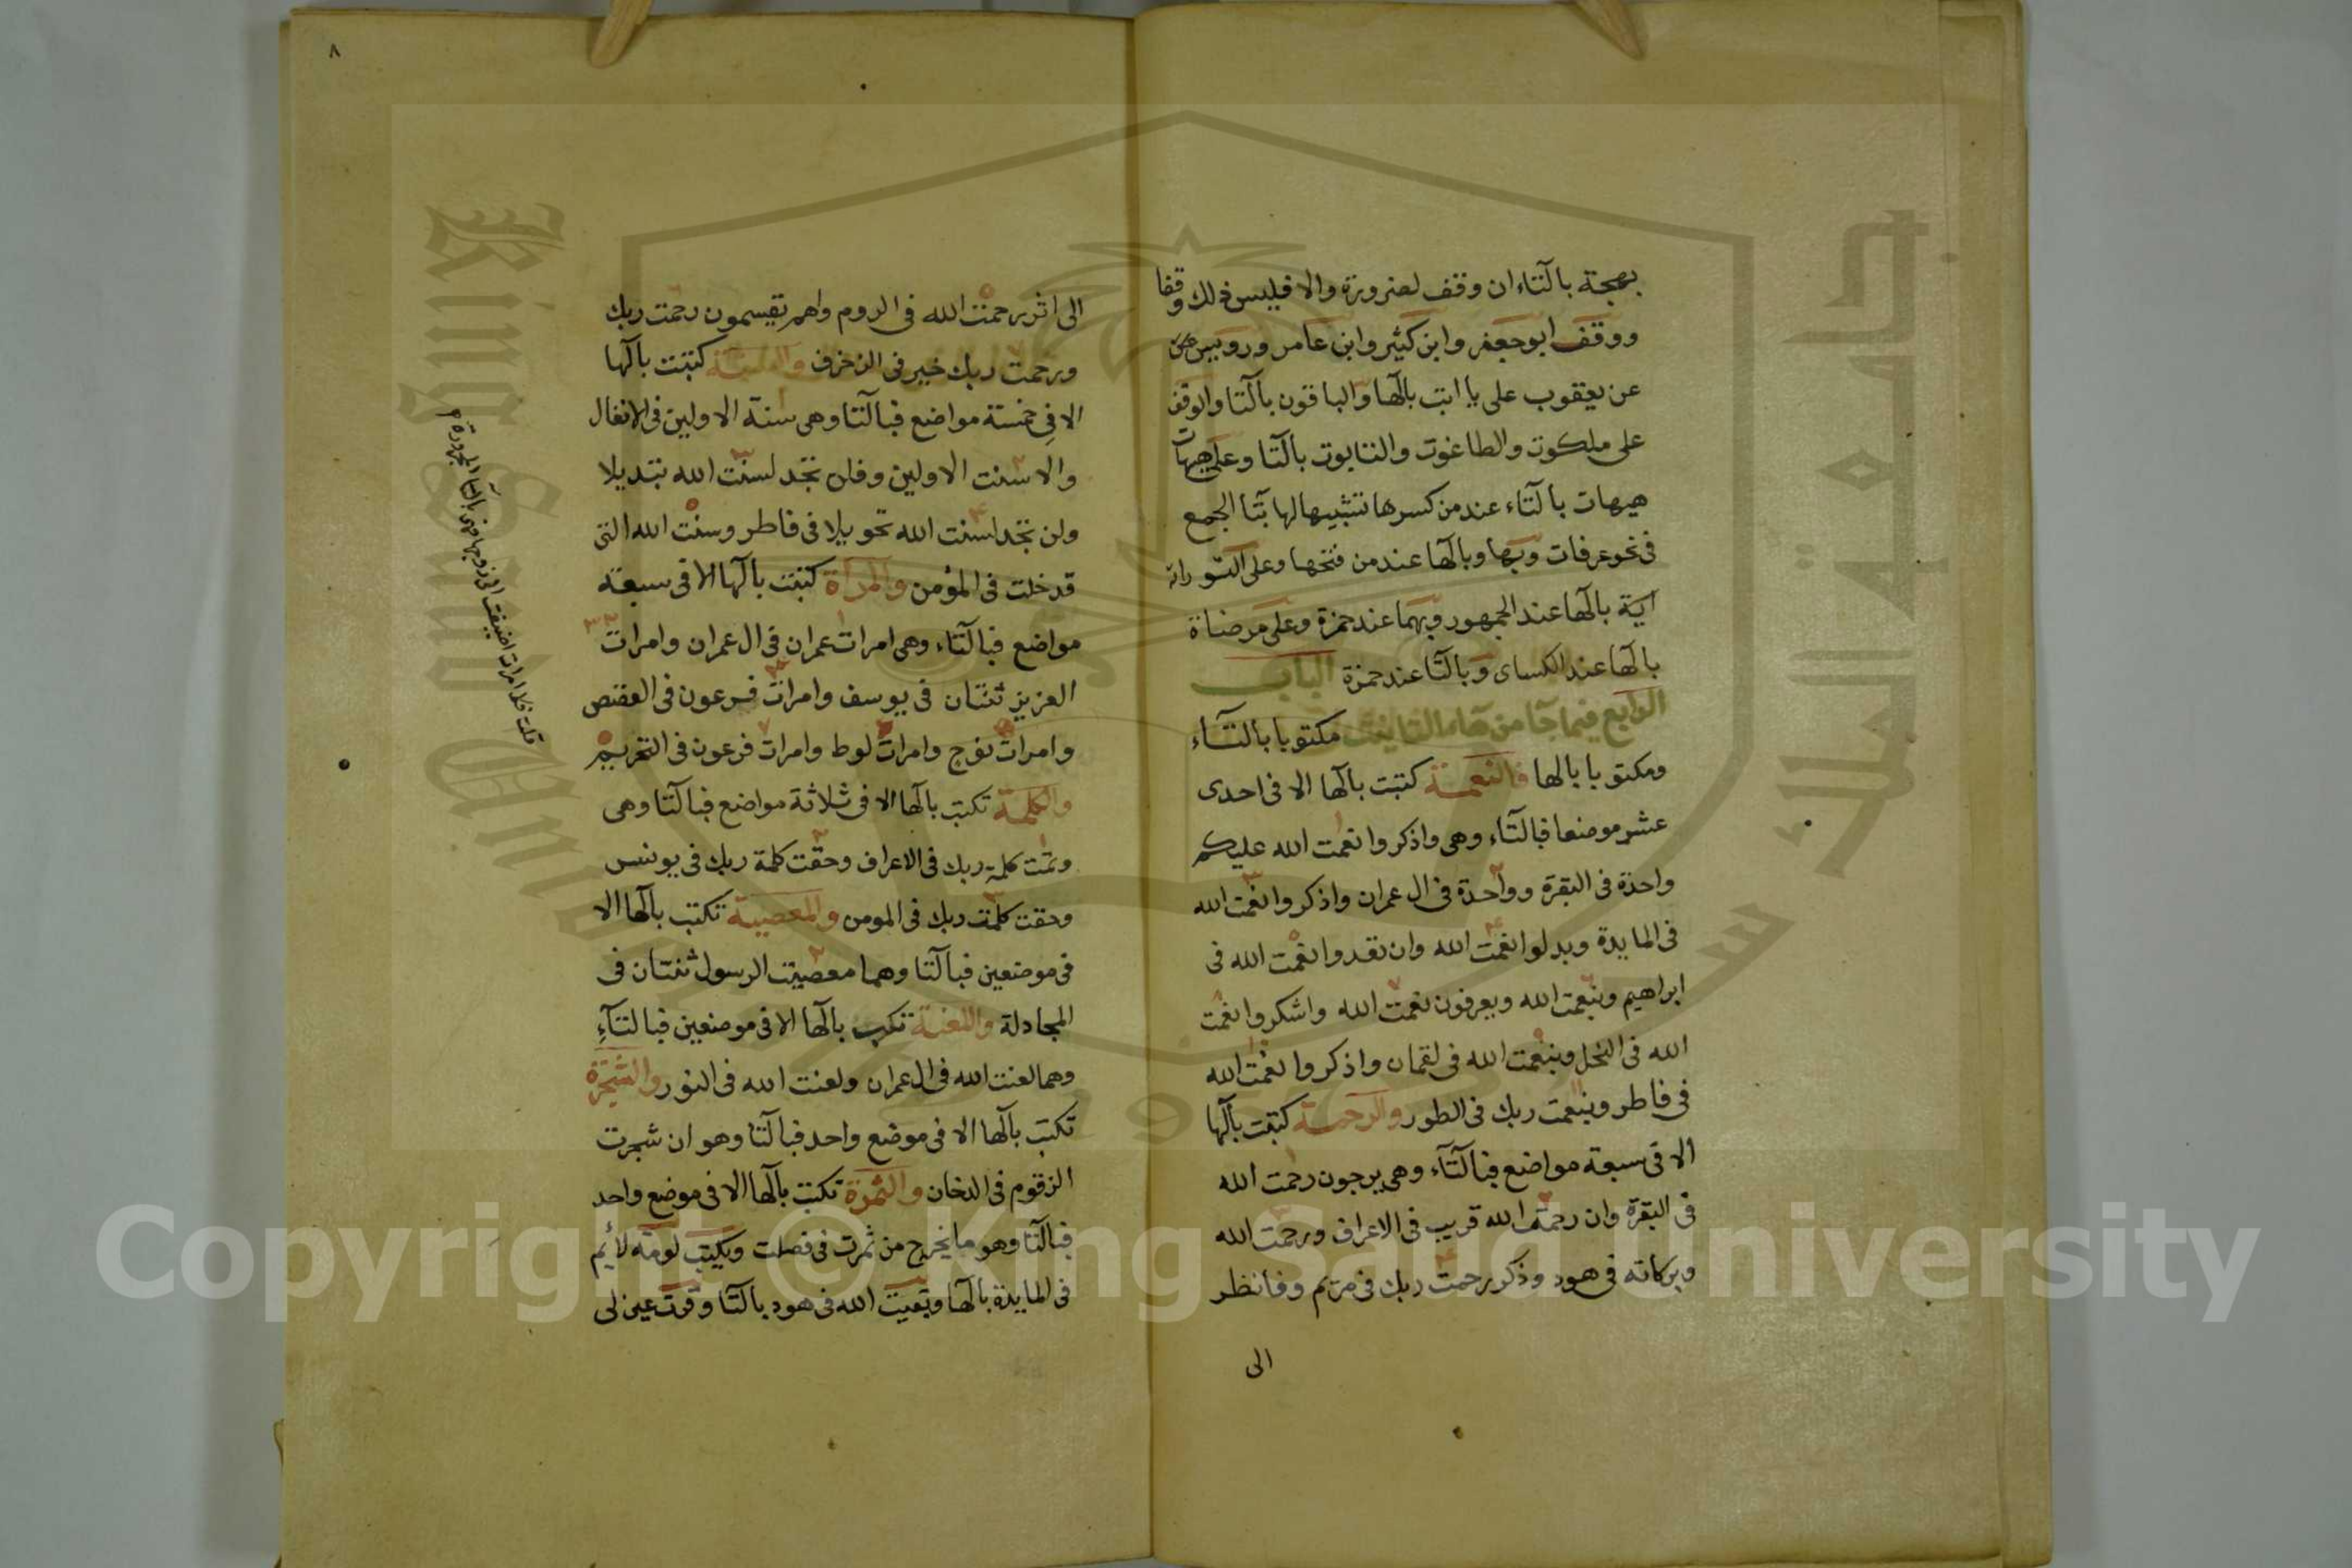 بهجة بالتاء ان وقف لضرورة والا فليس ذلك وقفا
ووقف ابو جعفر وابن كثير وابن عامر ورويس
عن يعقوب على يا ابت بالها والباقون بالتا والوقف
على ملكوت والطاغوت والتابوت بالتا وعلى هيهات
هيهات بالتاء عند من كسرها تشبيها لها بتا الجمع
فى نحو عرفات وبها وبالها عند من فتحها وعلى
اية بالها عند الجمهور وبهما عند حمزة وعلى مرضاة
بالها عند الكساى وبالتا عند حمزة الباب
الرابع فيما جا من هاء التانيث مكتوبا بالتاء
ومكتوبا بالها فالنعمة كتبت بالها الا فى احدى
عشر موضعا فبالتاء وهى واذكروا نعمت الله عليكم
واحدة فى البقرة وواحدة فى ال عمران واذكروا نعمت الله
فى المايدة وبدلوا نعمت الله وان تعدوا نعمت الله فى
ابراهيم وبنعمت الله ويعرفون نعمت الله واشكروا نعمت
الله فى النحل وبنعمت الله فى لقمان واذكروا نعمت الله
فى فاطر وبنعمت ربك فى الطور والرحمة كتبت بالها
الا فى سبعة مواضع فبالتاء وهى يرجون رحمت الله
فى البقرة وان رحمت الله قريب فى الاعراف ورحمت الله
وبركاته فى هود وذكر رحمت ربك فى مريم وفانظر
الى
٨
الى اثر رحمت الله فى الروم واهم يقسمون رحمت ربك
ورحمت ربك خير فى الزخرف والسنة كتبت بالها
الا فى خمسة مواضع فبالتا وهى سنة الاولين فى الانفال
والا سنت الاولين وفلن تجد لسنت الله تبديلا
ولن تجد لسنت الله تحويلا فى فاطر وسنت الله التى
قد خلت فى المؤمن والمراة كتبت بالها الا فى سبعة
مواضع فبالتاء وهى امرات عمران فى ال عمران وامرات
العزيز ثنتان فى يوسف وامرات فرعون فى القصص
وامرات نوح وامرات لوط وامرات فرعون فى التحريم
والكلمة تكتب بالها الا فى ثلاثة مواضع فبالتا وهى
وتمت كلمة ربك فى الاعراف وحقت كلمة ربك فى يونس
وحقت كلمت ربك فى المومن والمعصية تكتب بالها الا
فى موضعين فبالتا وهما معصيت الرسول ثنتان فى
المجادلة واللعنة تكتب بالها الا فى موضعين فبالتاء
وهما لعنت الله فى ال عمران ولعنت الله فى النور والشجرة
تكتب بالها الا فى موضع واحد فبالتا وهو ان شجرت
الزقوم فى الدخان والثمرة تكتب بالها الا فى موضع واحد
فبالتا وهو ما يخرج من ثمرت فى فصلت ويكتب لومة لائم
فى المايدة بالها وبقيت الله فى هود بالتا وقرت عين لى
امرات اضيفت الى زوجها فهى بالتا المجرورة
Copyright © King Saud University
King Saud University
جامعة الملك سعود
1957